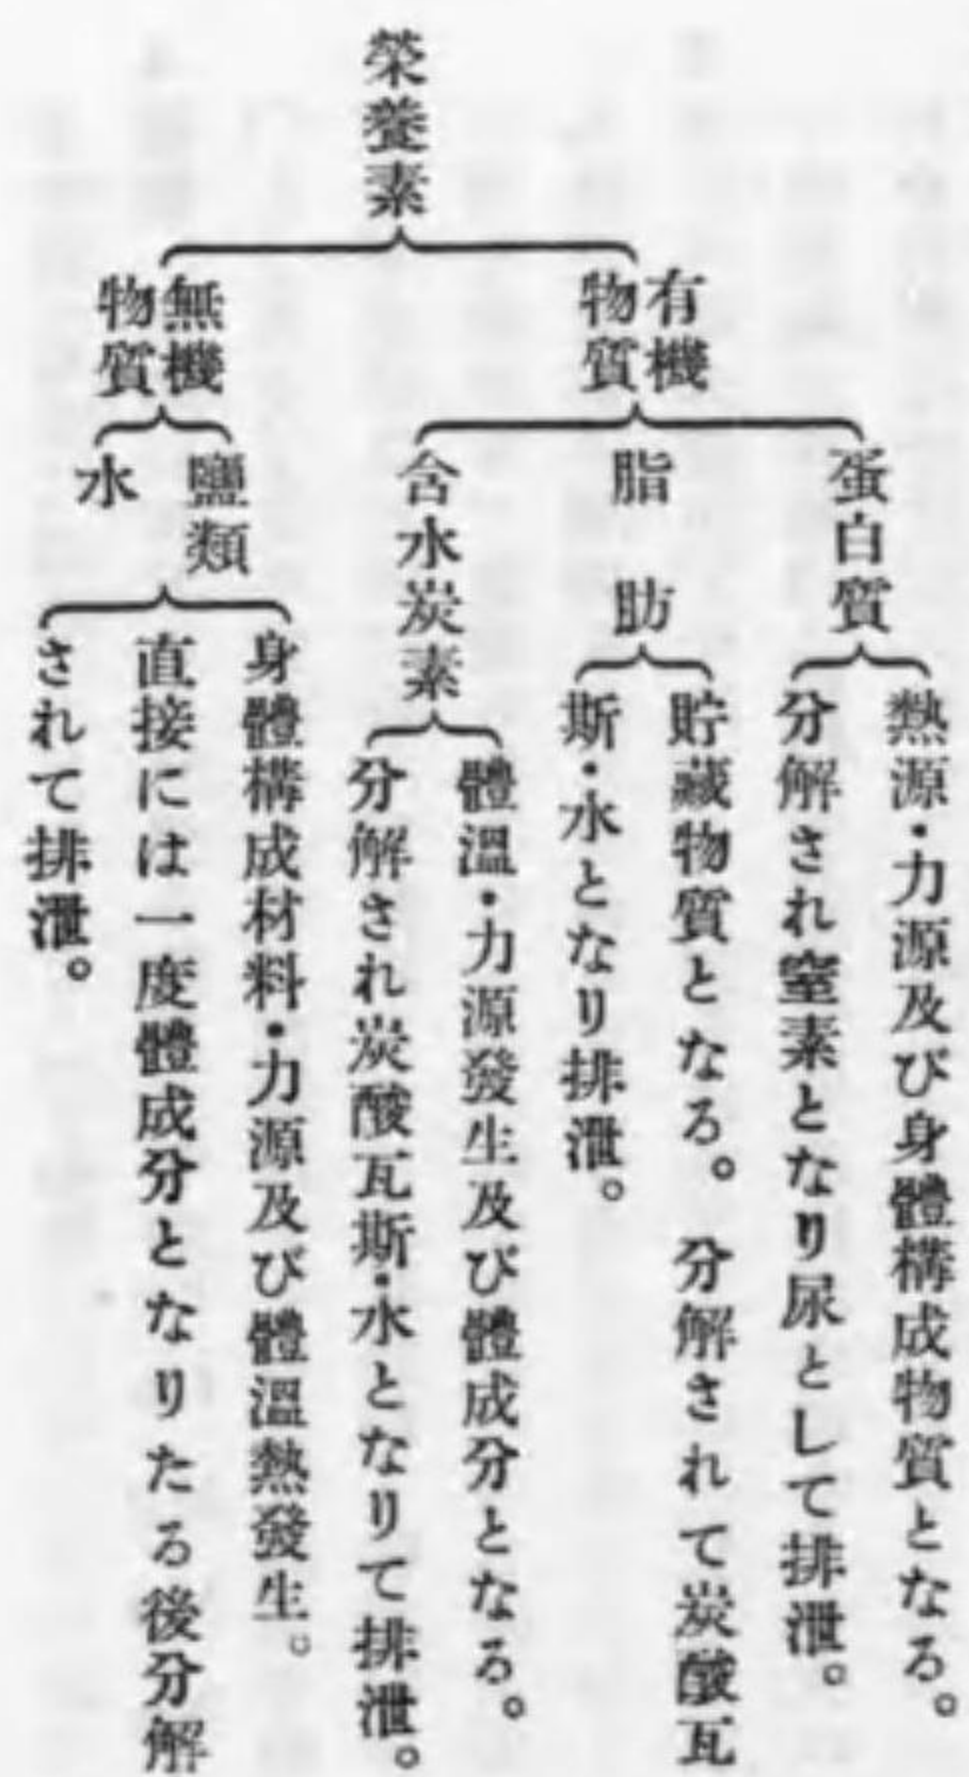 榮養素
有機
物質
蛋白質
熱源・力源及び身體構成物質となる。
分解され窒素となり尿として排泄。
脂肪
貯藏物質となる。分解されて炭酸瓦
斯・水となり排泄。
含水炭素
體溫・力源發生及び體成分となる。
分解され炭酸瓦斯・水となりて排泄。
無機
物質
鹽類
水
身體構成材料・力源及び體溫熱發生。
直接には一度體成分となりたる後分解
されて排泄。